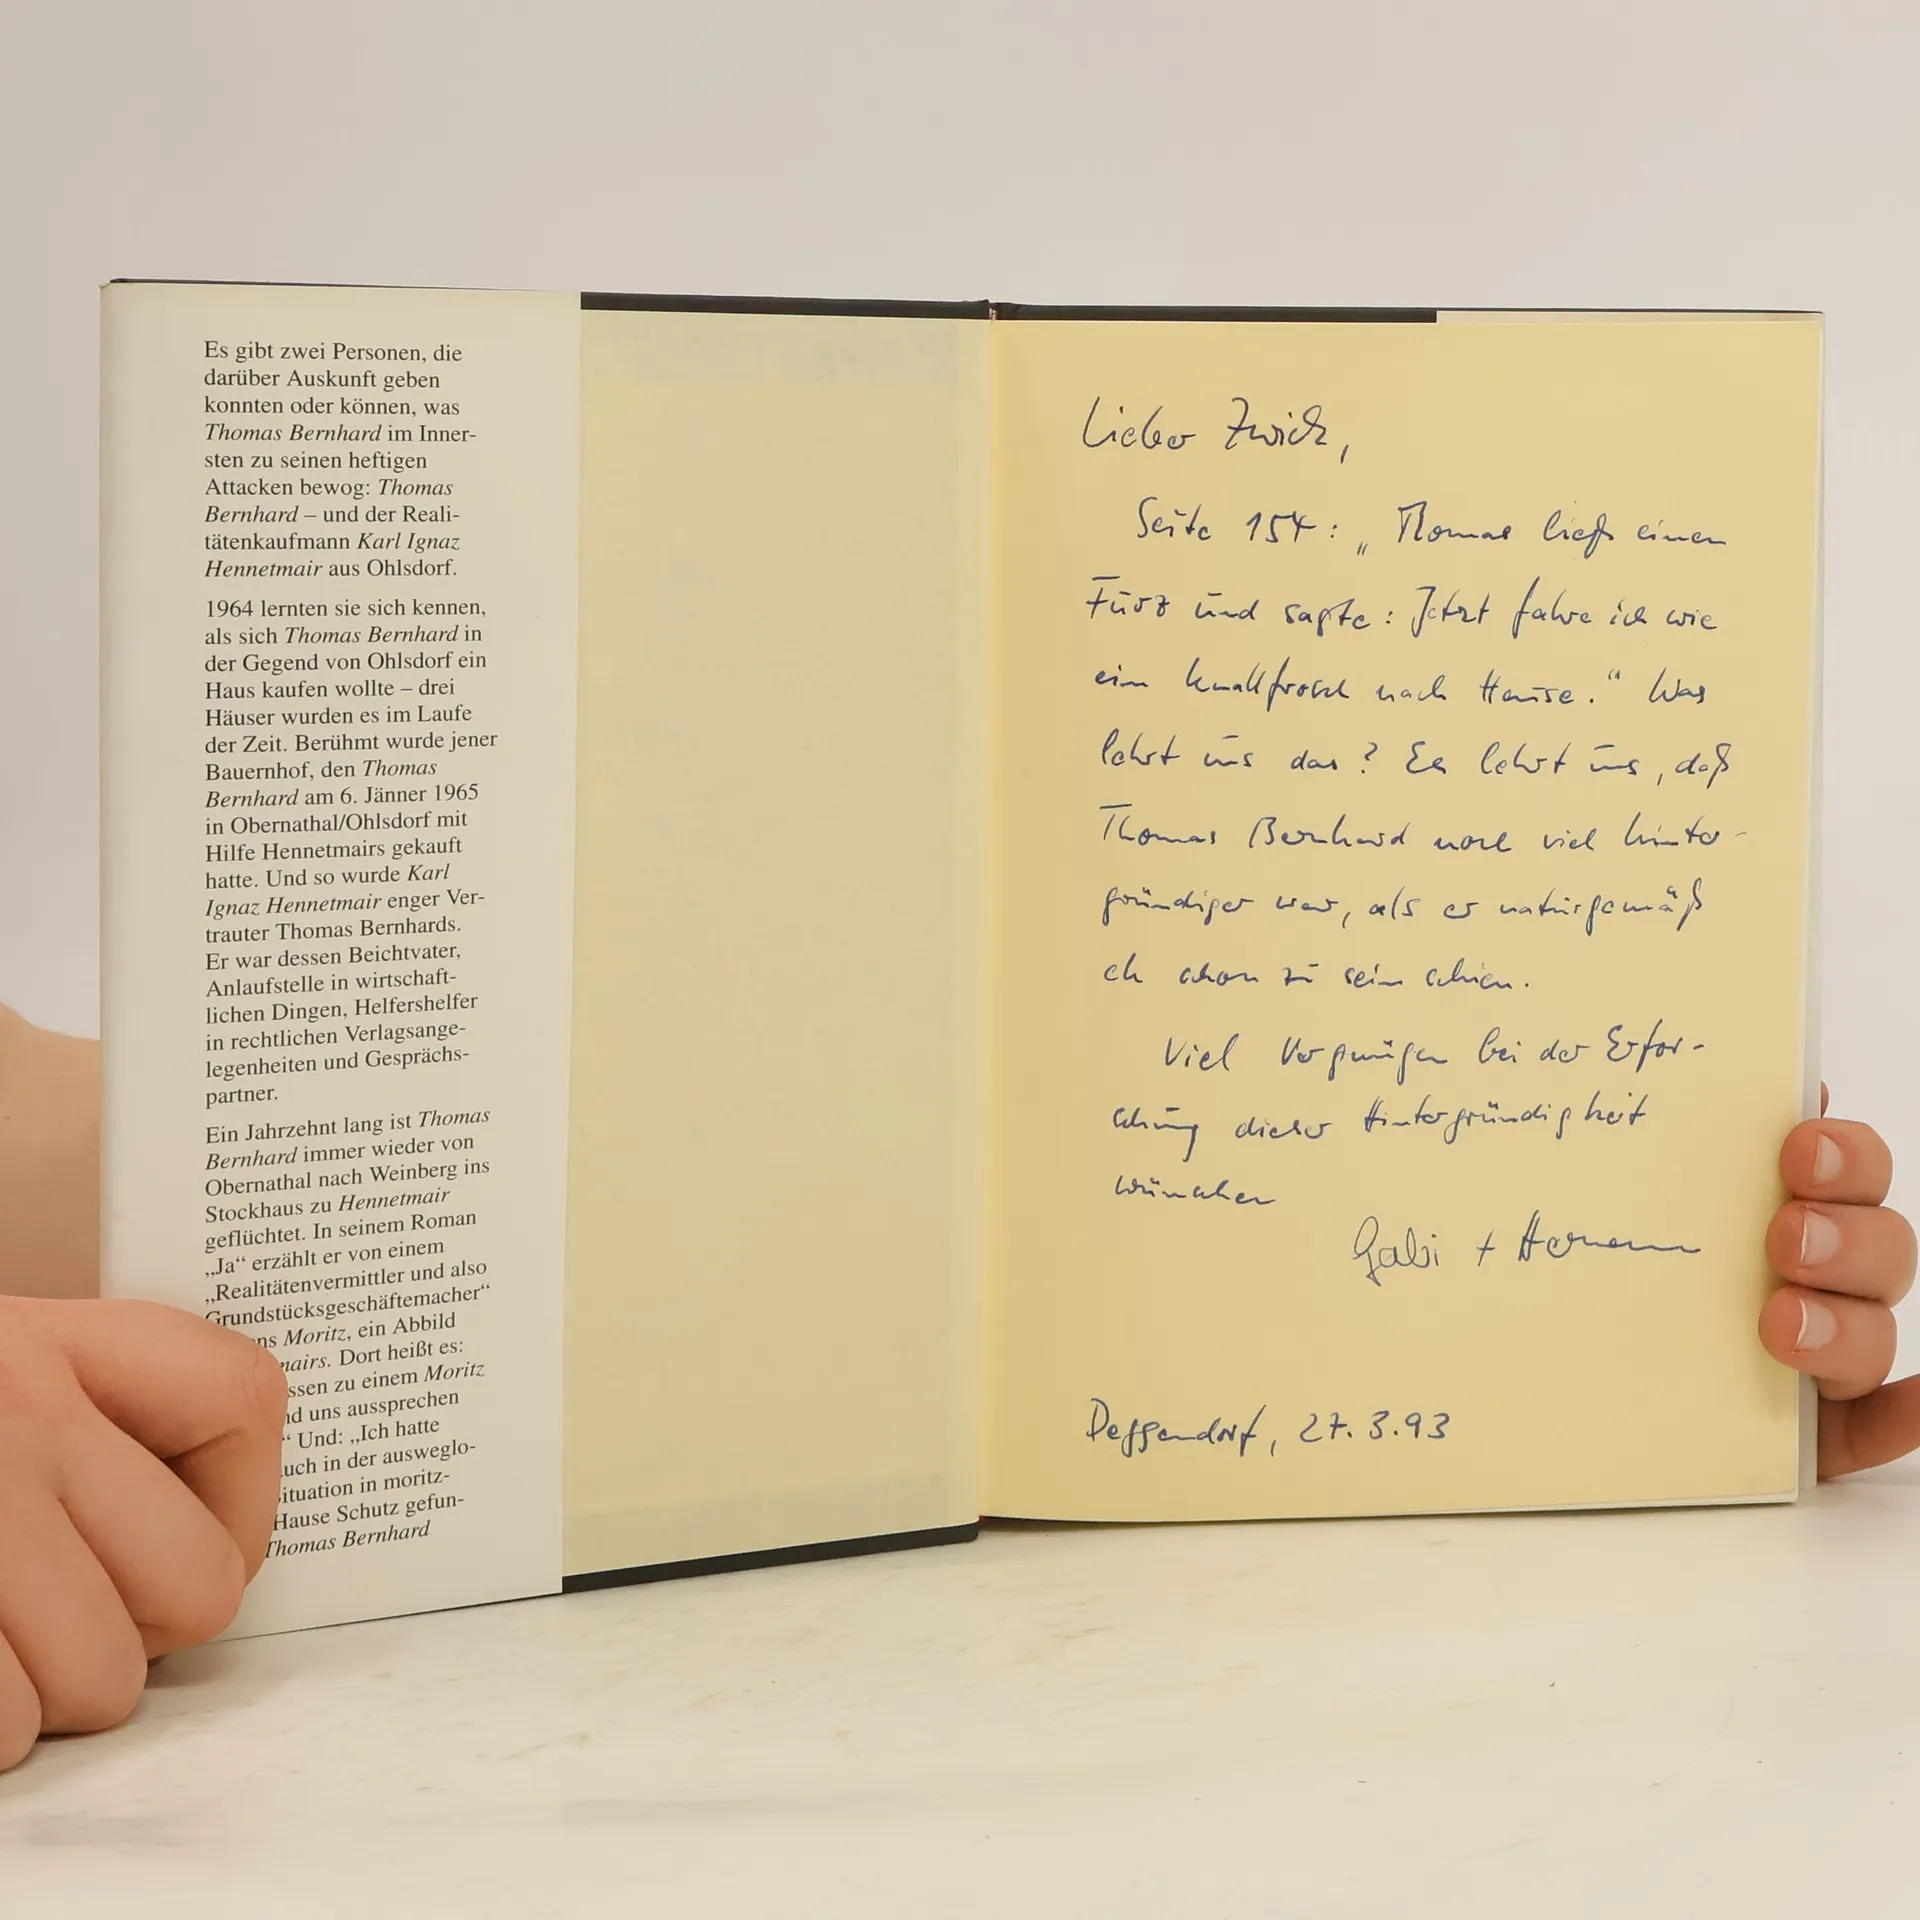 Es gibt zwei Personen, die
darüber Auskunft geben
konnten oder können, was
Thomas Bernhard im Inner-
sten zu seinen heftigen
Attacken bewog: Thomas
Bernhard – und der Reali-
tätenkaufmann Karl Ignaz
Hennetmair aus Ohlsdorf.
1964 lernten sie sich kennen,
als sich Thomas Bernhard in
der Gegend von Ohlsdorf ein
Haus kaufen wollte – drei
Häuser wurden es im Laufe
der Zeit. Berühmt wurde jener
Bauernhof, den Thomas
Bernhard am 6. Jänner 1965
in Obernathal/Ohlsdorf mit
Hilfe Hennetmairs gekauft
hatte. Und so wurde Karl
Ignaz Hennetmair enger Ver-
trauter Thomas Bernhards.
Er war dessen Beichtvater,
Anlaufstelle in wirtschaft-
lichen Dingen, Helfershelfer
in rechtlichen Verlagsange-
legenheiten und Gesprächs-
partner.
Ein Jahrzehnt lang ist Thomas
Bernhard immer wieder von
Obernathal nach Weinberg ins
Stockhaus zu Hennetmair
geflüchtet. In seinem Roman
„Ja“ erzählt er von einem
„Realitätenvermittler und also
Grundstücksgeschäftemacher“
Moritz, ein Abbild
Dort heißt es:
zu einem Moritz
uns aussprechen
“ Und: „Ich hatte
in der ausweglo-
in moritz-
Hause Schutz gefun-
Thomas Bernhard
Lieber Zwick,
Seite 154: „Thomas ließ einen
Furz und sagte: Jetzt fahre ich wie
ein Knallfrosch nach Hause.“ Was
lehrt uns das? Es lehrt uns, daß
Thomas Bernhard noch viel hinter-
gründiger war, als er naturgemäß
eh schon zu sein schien.
Viel Vergnügen bei der Erfor-
schung dieser Hintergründigkeit
wünschen
Gabi + Hermann
Deggendorf, 27.3.93